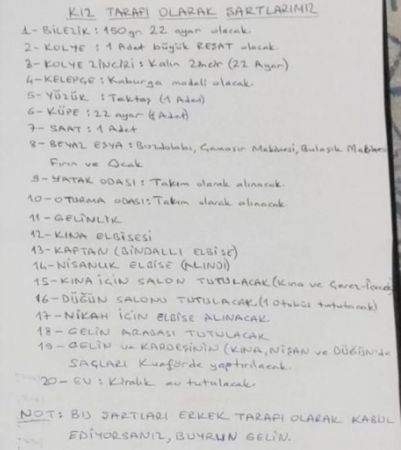 KIZ TARAFI OLARAK ŞARTLARIMIZ
1- BİLEZİK : 150 gr 22 ayar olacak.
2- KOLYE : 1 Adet büyük REŞAT olacak.
3- KOLYE ZİNCİRİ : Kalın 2 metr (22 Ayar)
4- KELEPÇE : Kaburga modeli olacak.
5- YÜZÜK : Tektaş (1 Adet)
6- KÜPE : 22 ayar (1 Adet)
7- SAAT : 1 Adet
8- BEYAZ EŞYA : Buzdolabı, Çamaşır Makinesi, Bulaşık Makinesi
Fırın ve Ocak
9- YATAK ODASI : Takım olarak alınacak.
10- OTURMA ODASI : Takım olarak alınacak.
11- GELİNLİK
12- KINA ELBİSESİ
13- KAFTAN (BİNDALLI ELBİSE)
14- NİŞANLIK ELBİSE (ALINDI)
15- KINA İÇİN SALON TUTULACAK (Kına ve Çerez-İçecek)
16- DÜĞÜN SALONU TUTULACAK. (1 Otobüs tutulacak)
17- NİKAH İÇİN ELBİSE ALINACAK
18- GELİN ARABASI TUTULACAK
19- GELİN ve KARDEŞİNİN (KINA, NİŞAN ve DÜĞÜN'de
SAÇLARI Kuaförde yaptırılacak.
20- EV : Kiralık ev tutulacak.
NOT : BU ŞARTLARI ERKEK TARAFI OLARAK KABUL
EDİYORSANIZ, BUYRUN GELİN.